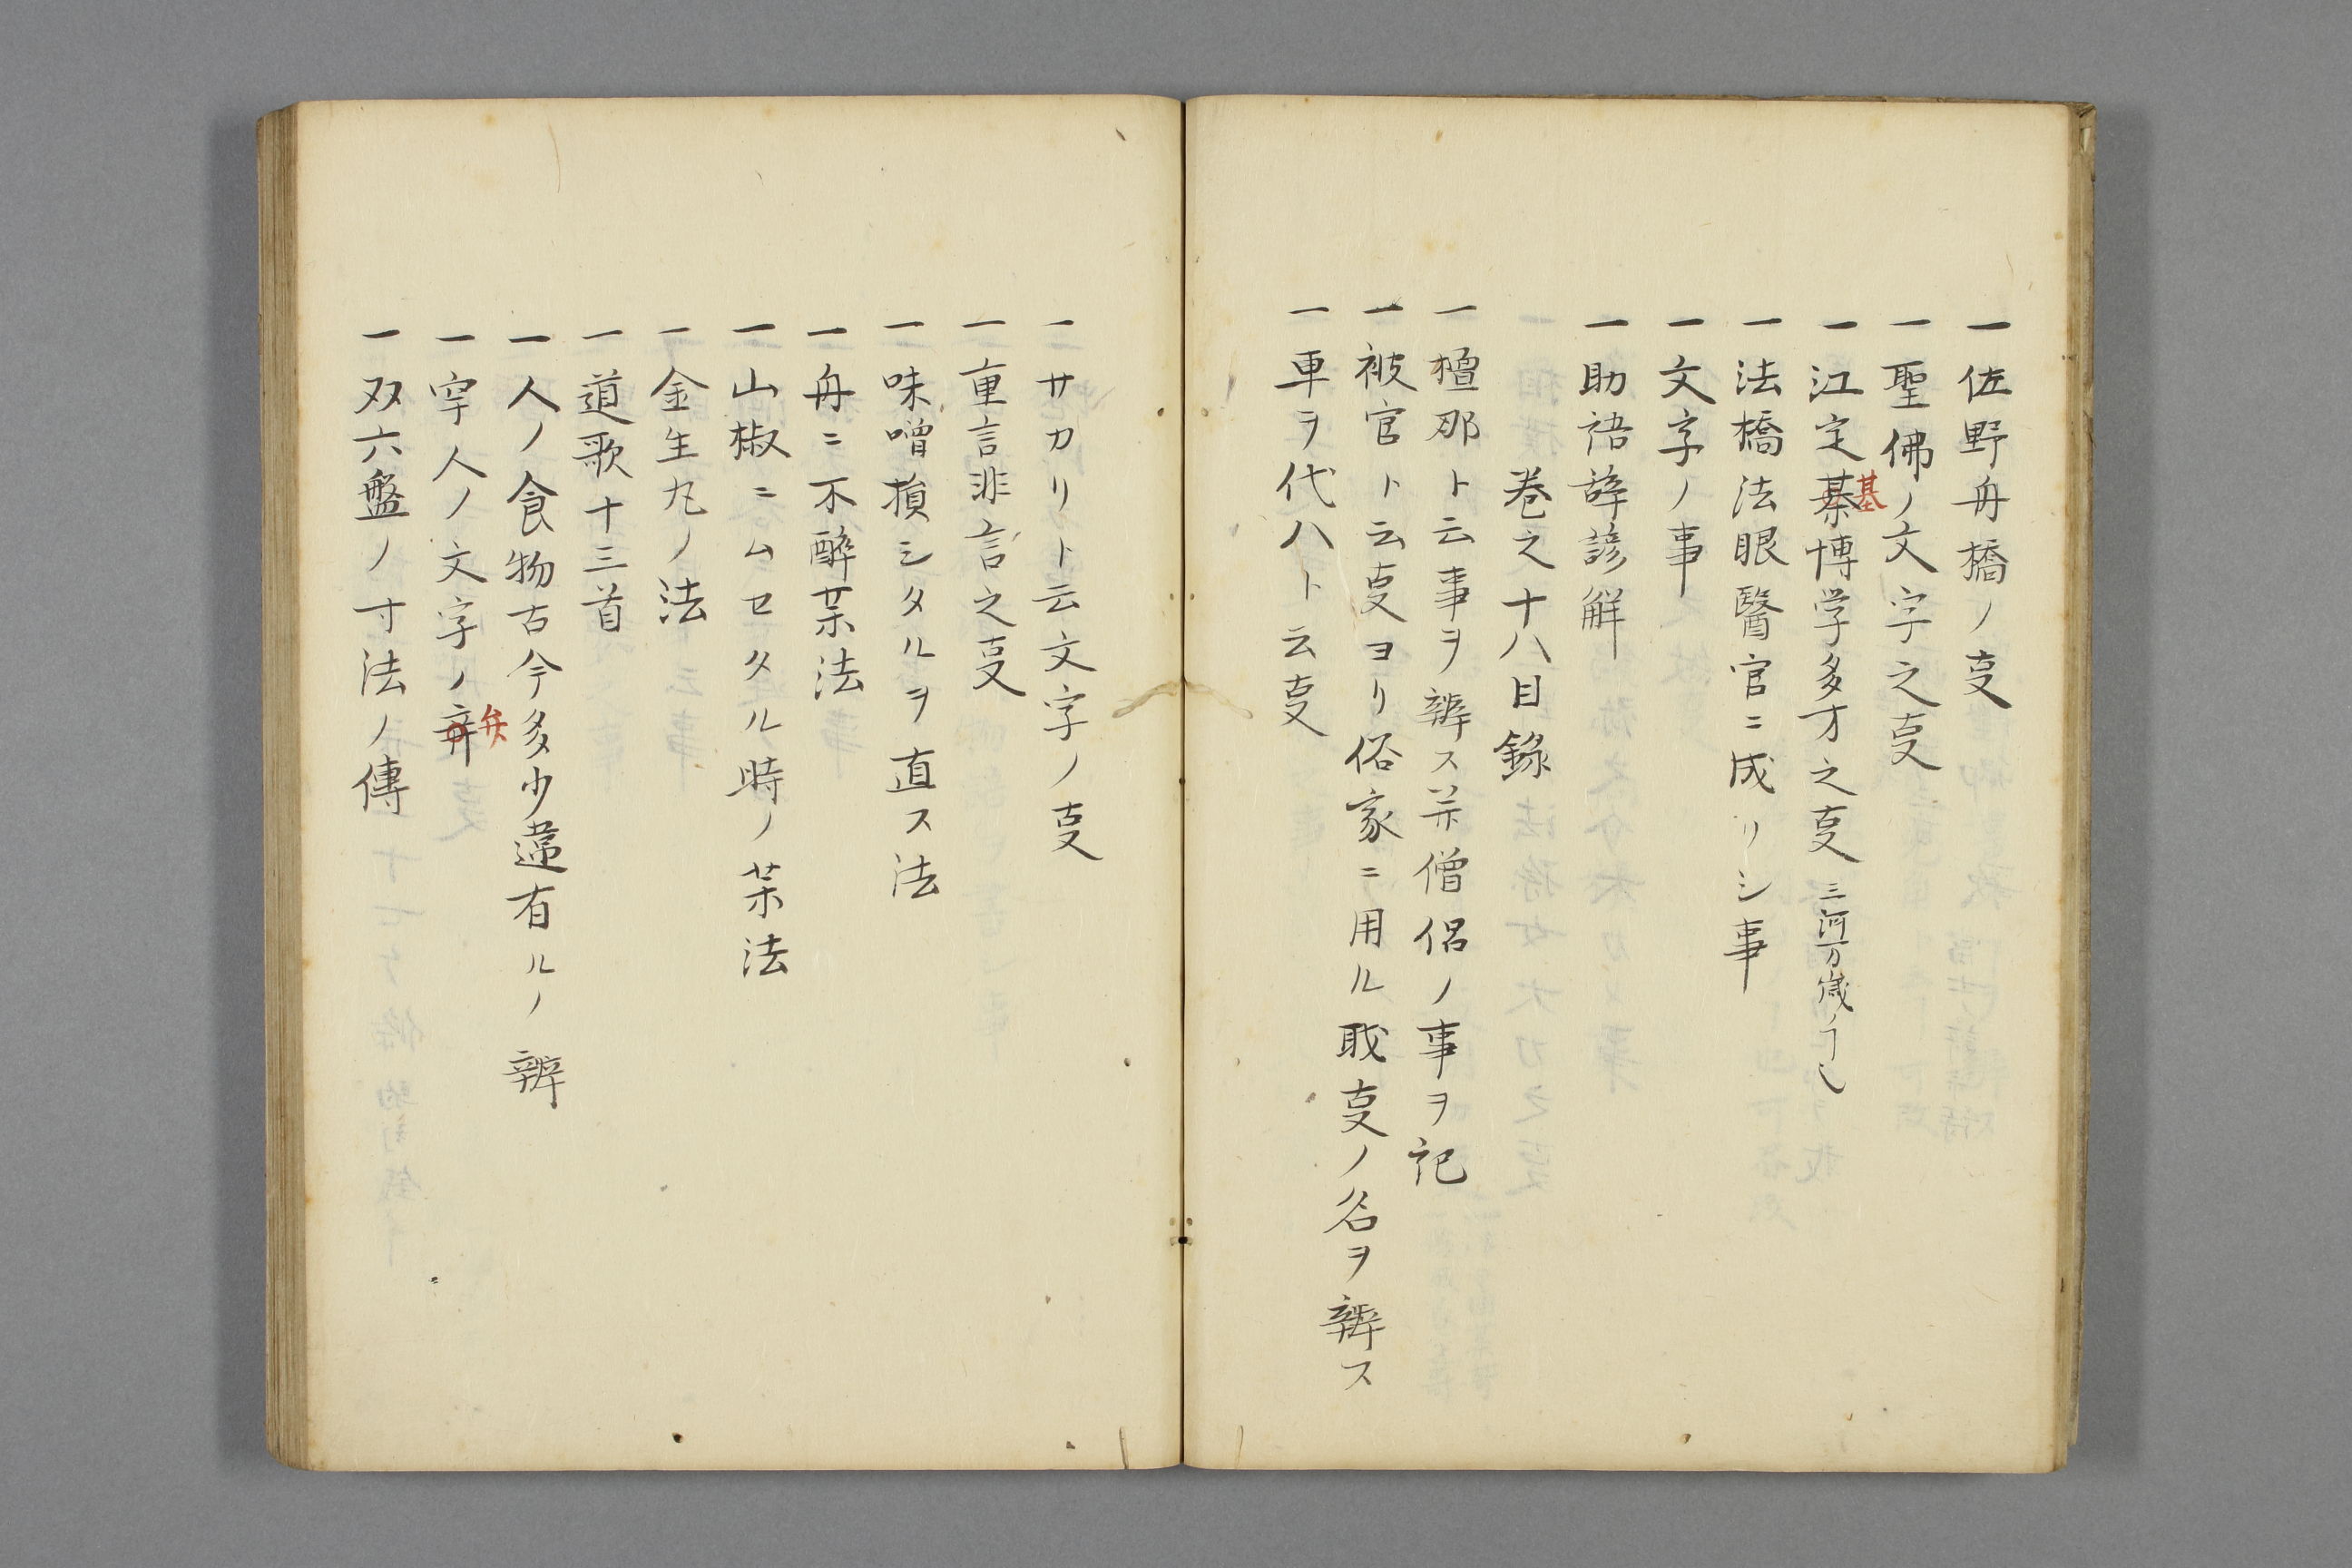 一佐野舟橋ノ㕝
一聖佛ノ文字之㕝
一江定綦博学多才之㕝 三河万歳ノ
基
一法橋法眼醫官ニ成リシ事
一文字ノ事
一助語辞諺解
巻之十八目錄
一檀那ト云事ヲ辨ス并僧侶ノ事ヲ記
一被官ト云㕝ヨリ俗家ニ用ル職㕝ノ名ヲ辨ス
一車ヲ代八ト云㕝
一サカリト云文字ノ㕝
一重言非言之㕝
一味噌損シタルヲ直ス法
一舟ニ不醉茶法
一山椒ニムセタル時ノ茶法
一金生丸ノ法
一道歌十三首
一人ノ食物古今多少違有ルノ辨
一牢人ノ文字ノ
弁
一双六盤ノ寸法ノ傳